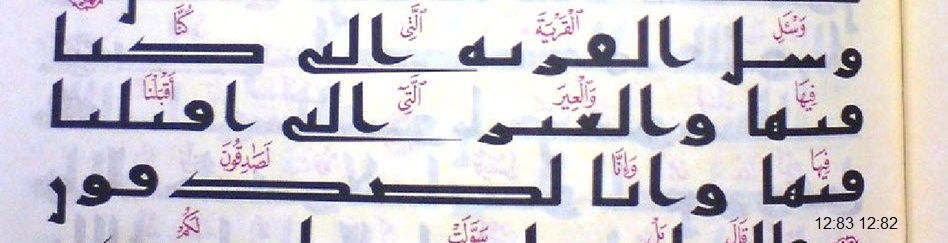 وَسْـَٔلِ ٱلْقَرْيَةَ ٱلَّتِى كُنَّا
وسل القريه التى كنا
فِيهَا وَٱلْعِيرَ ٱلَّتِىٓ أَقْبَلْنَا
فيها والعير التى اقبلنا
فِيهَا وَإِنَّا لَصَـٰدِقُونَ
فيها وانا لصدقور
قَالَ بَلْ سَوَّلَتْ لَكُمْ
12:83 12:82